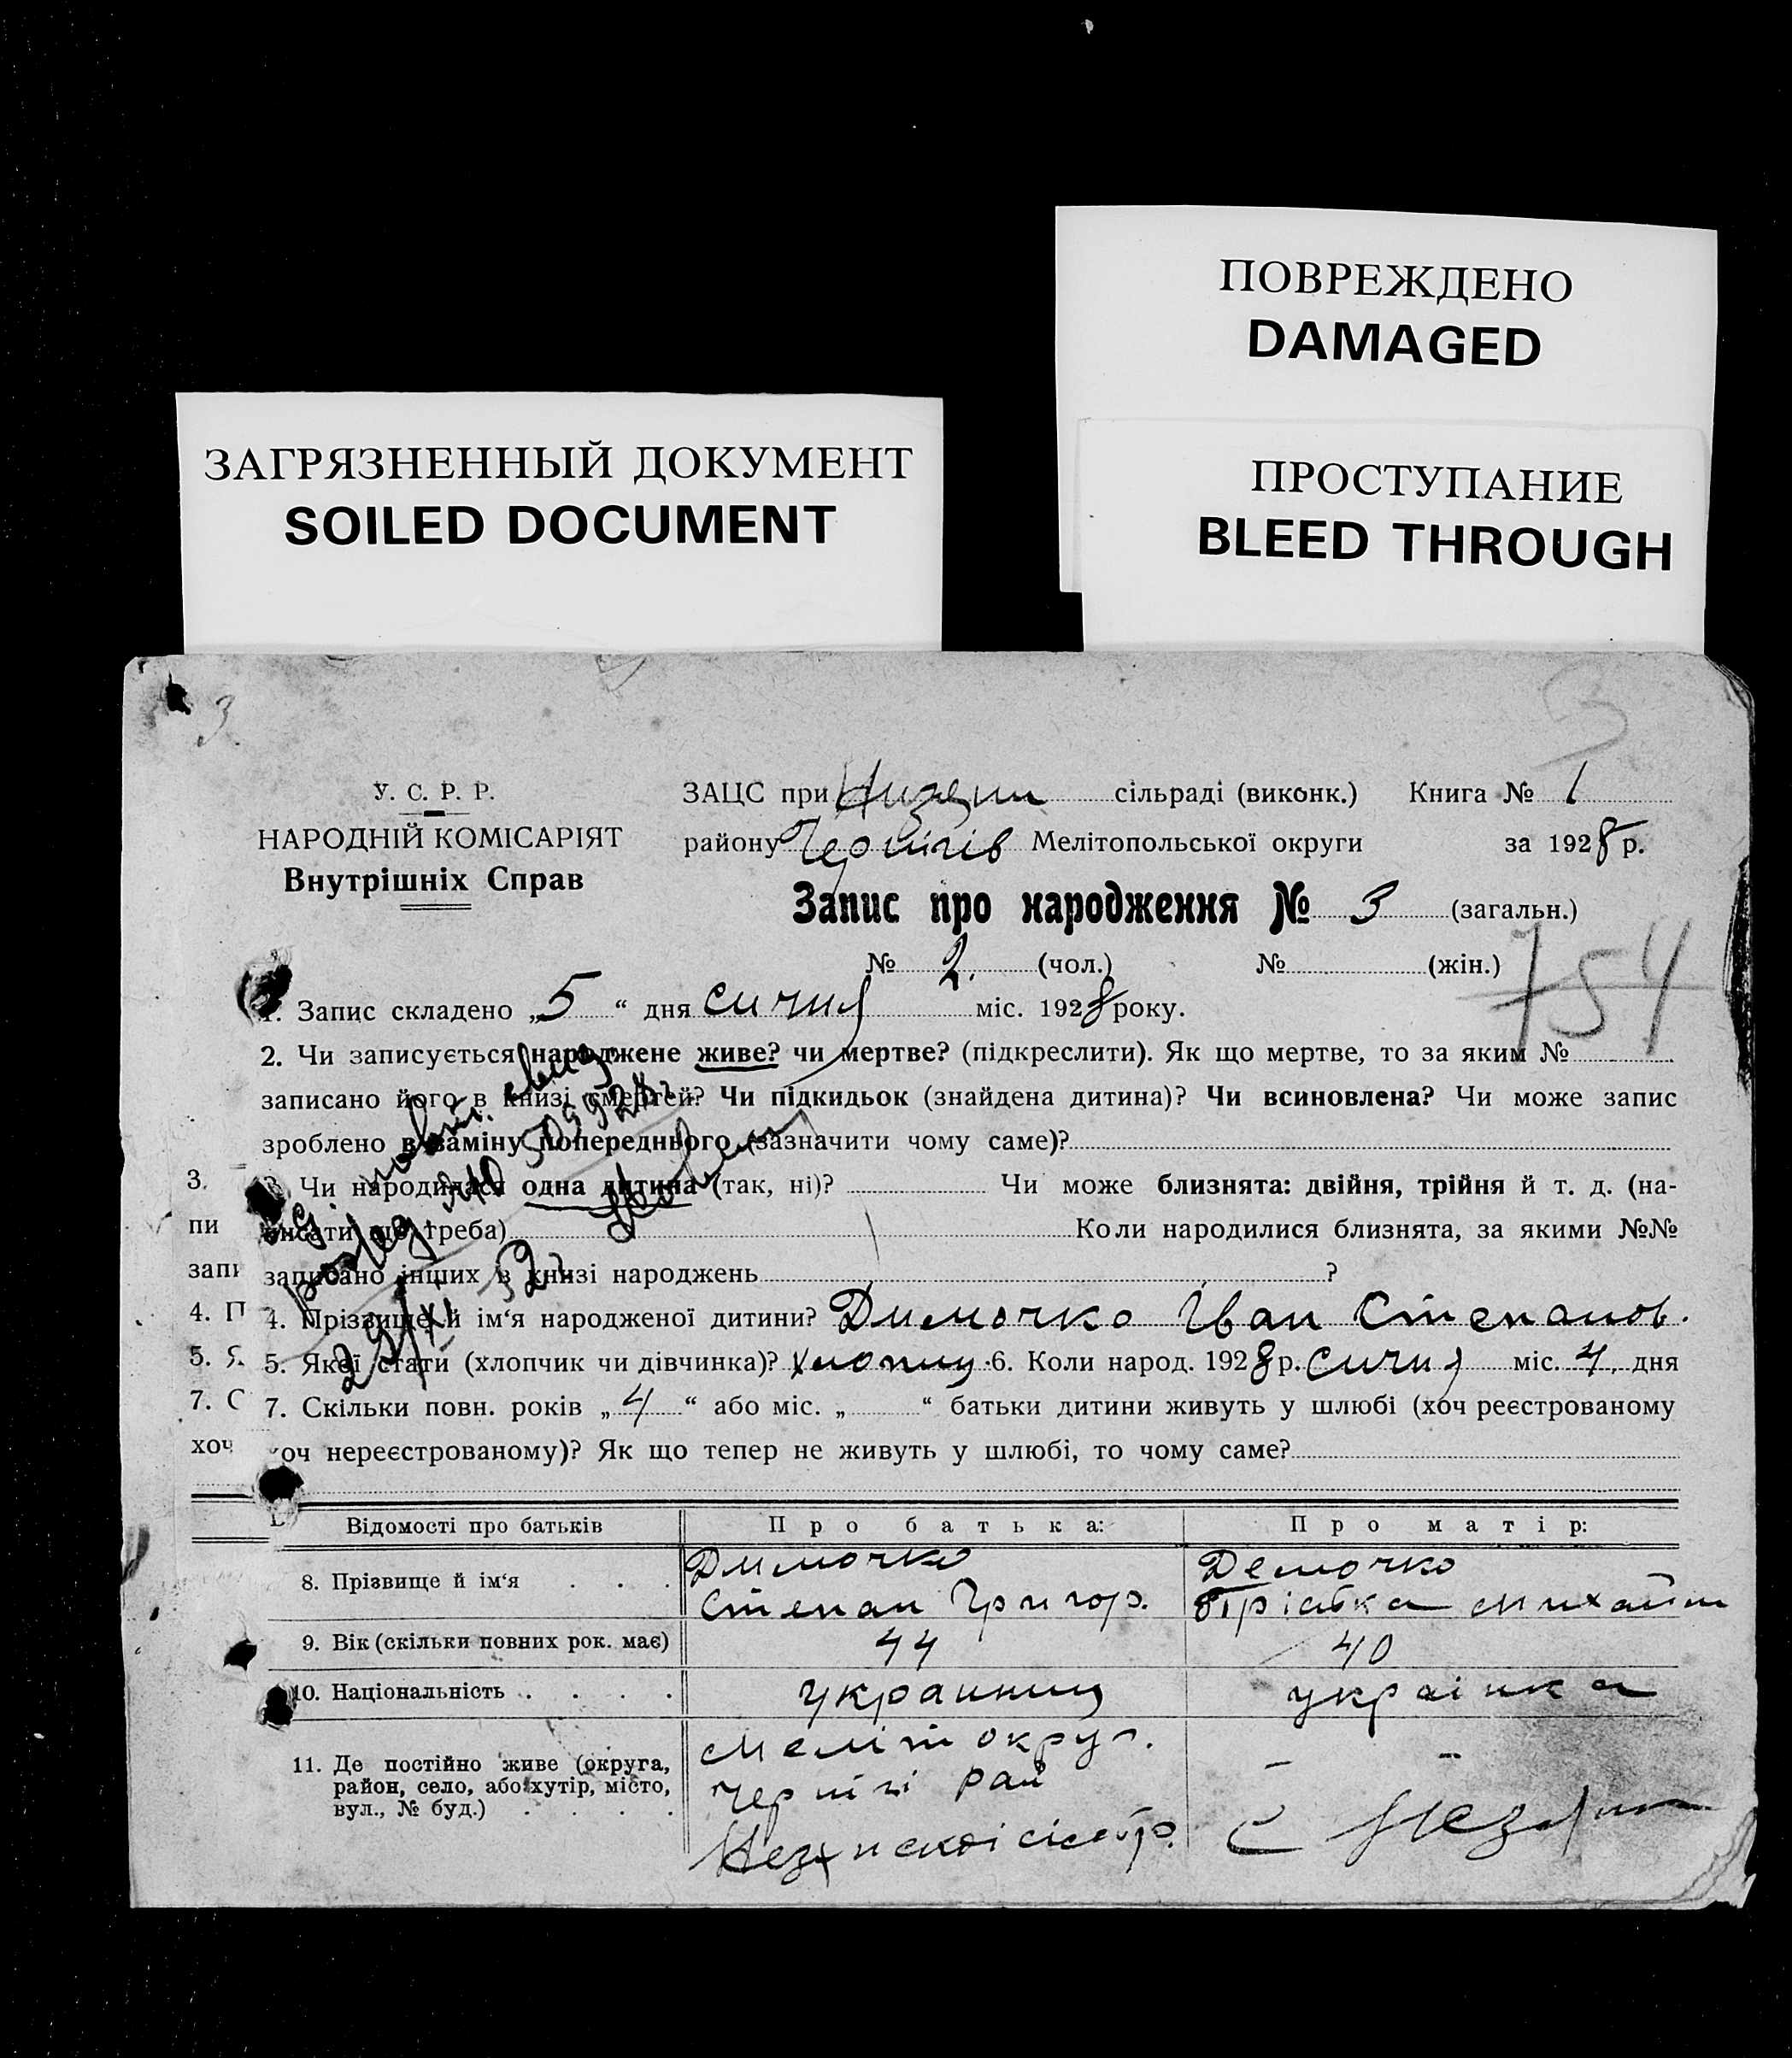 ПОВРЕЖДЕНО
DAMAGED
ЗАГРЯЗНЕННЫЙ ДОКУМЕНТ
SOILED DOCUMENT
ПРОСТУПАНИЕ
BLEED THROUGH
3
3
У. С. Р. Р.
НАРОДНІЙ КОМІСАРІЯТ
Внутрішніх Справ
ЗАЦС при сільраді (виконк.) Книга № 1
району Чернігів Мелітопольської округи за 1928 р.
Запис про народження № 3 (загальн.)
№ 2. (чол.) № (жін.)
754
1. Запис складено „5“ дня січня міс. 1928 року.
2. Чи записується народжене живе? чи мертве? (підкреслити). Як що мертве, то за яким №
записано його в книзі смертей? Чи підкидьок (знайдена дитина)? Чи всиновлена? Чи може запис
зроблено в заміну попереднього (зазначити чому саме)?
3. Чи народилася одна дитина (так, ні)? Чи може близнята: двійня, трійня й т. д. (на-
писати що треба) Коли народилися близнята, за якими №№
записано інших в книзі народжень ?
4. Прізвище й ім‘я народженої дитини? Димочко Іван Степанов.
5. Якої стати (хлопчик чи дівчинка)? хлопчик 6. Коли народ. 1928 р. січня міс. 4. дня
7. Скільки повн. років „4“ або міс. „ “ батьки дитини живуть у шлюбі (хоч реєстрованому
хоч нереєстрованому)? Як що тепер не живуть у шлюбі, то чому саме?
3.
пи
запи
4. П
5. Я
7. С
хоч
Відомості про батьків Про батька: Про матір:
8. Прізвище й ім‘я . . . Димочко Демочко
Степан Григор.
9. Вік (скільки повних рок. має) 44 40
10. Національність . . . . украинец українка
11. Де постійно живе (округа, Меліт округ.
район, село, або хутір, місто, Черніг рай
вул., № буд.) . . . .